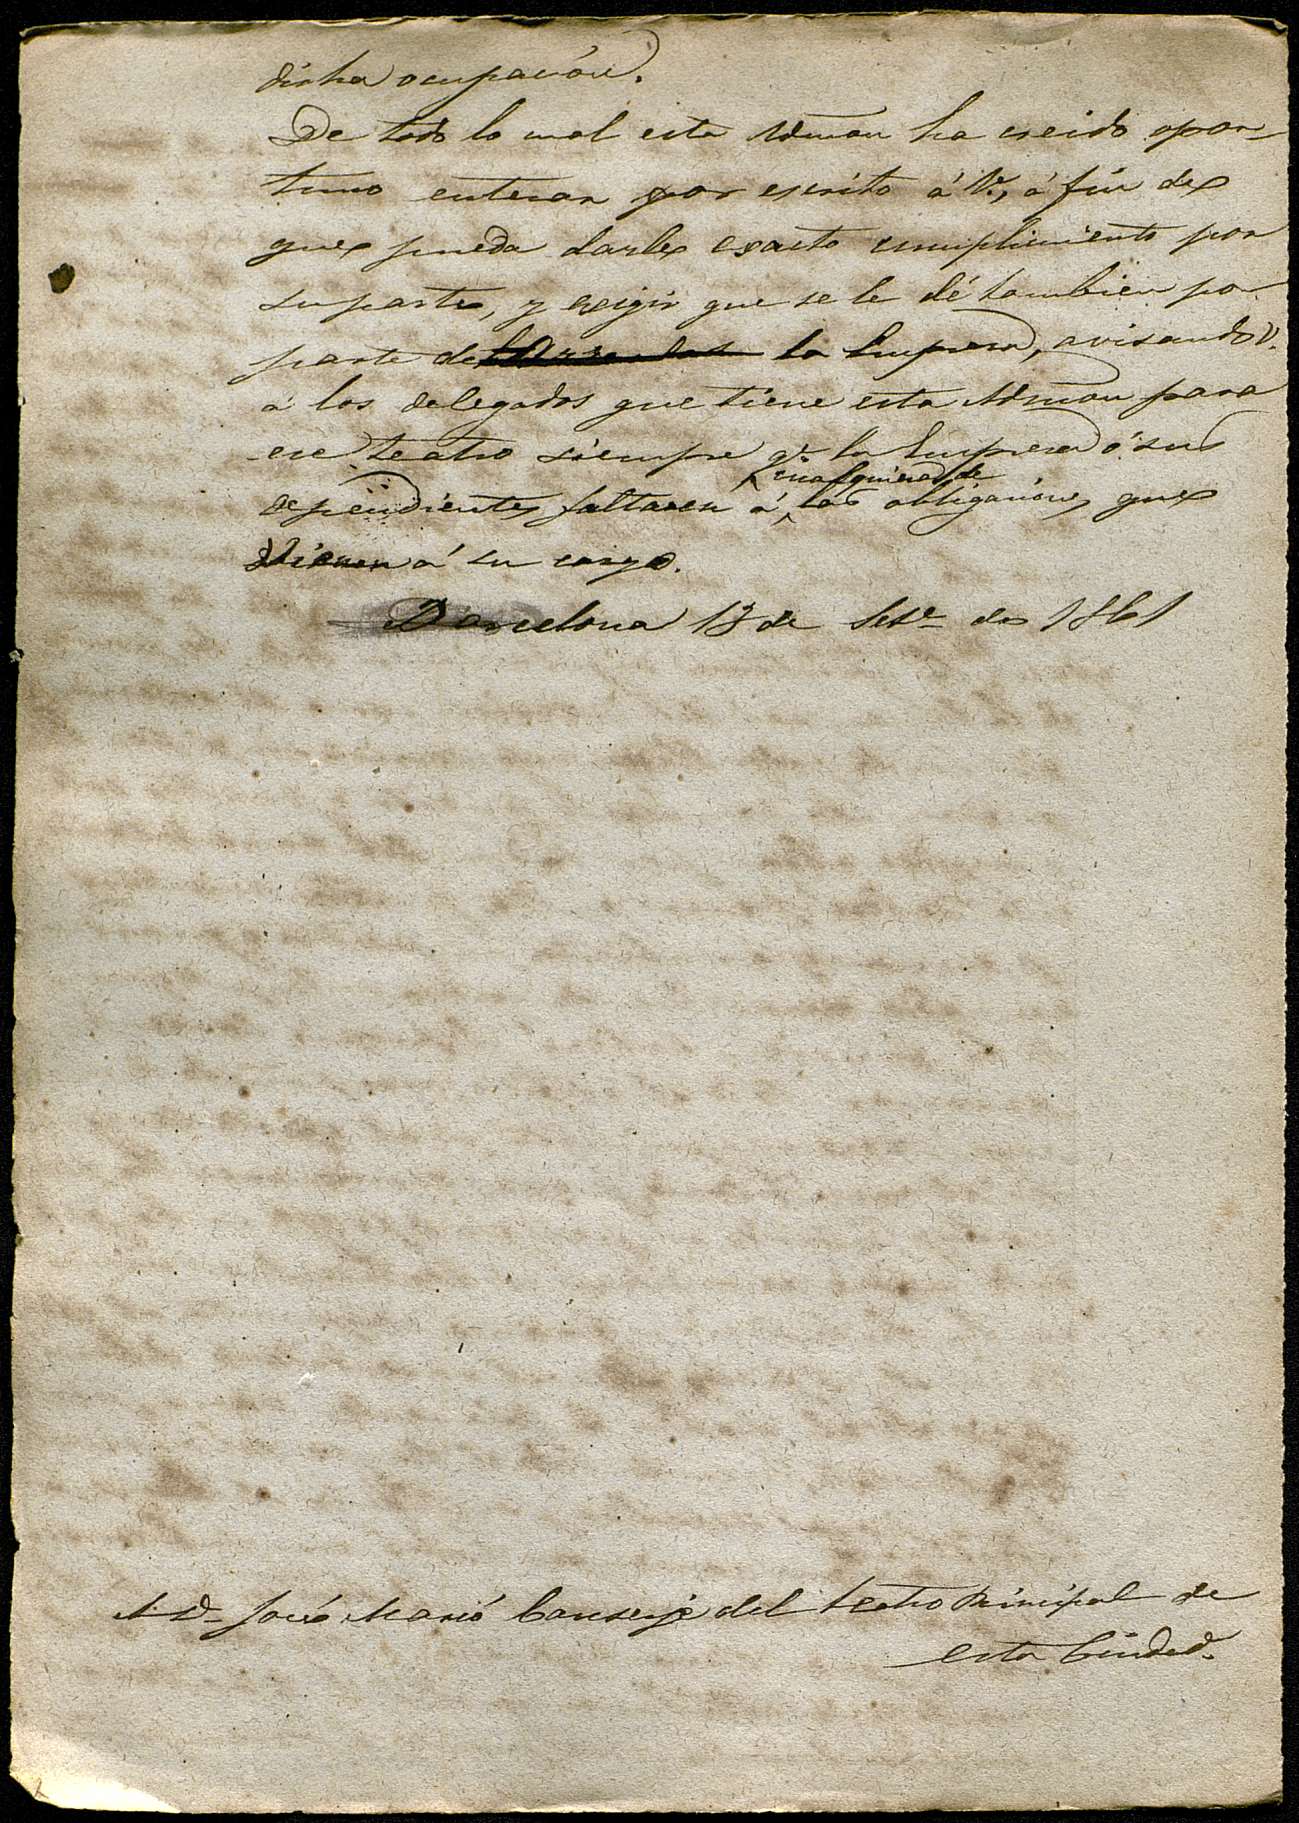 dicha ocupación.
De todo lo cual esta Admon ha creido opor-
tuno enterar por escrito á V., á fin de
que pueda darle exacto cumplimiento por
su parte, y exigir que se le dé tambien por
parte de la Empresa, avisando V.
á los delegados que tiene esta Admon para
ese teatro siempre qe. la Empresa ó sus
cualquiera de
dependientes faltasen á las obligaciones que
vienen á su cargo.
Barcelona 13 de Sete. de 1861
A Dn. José Marió Conserje del teatro Principal de
esta Ciudad.